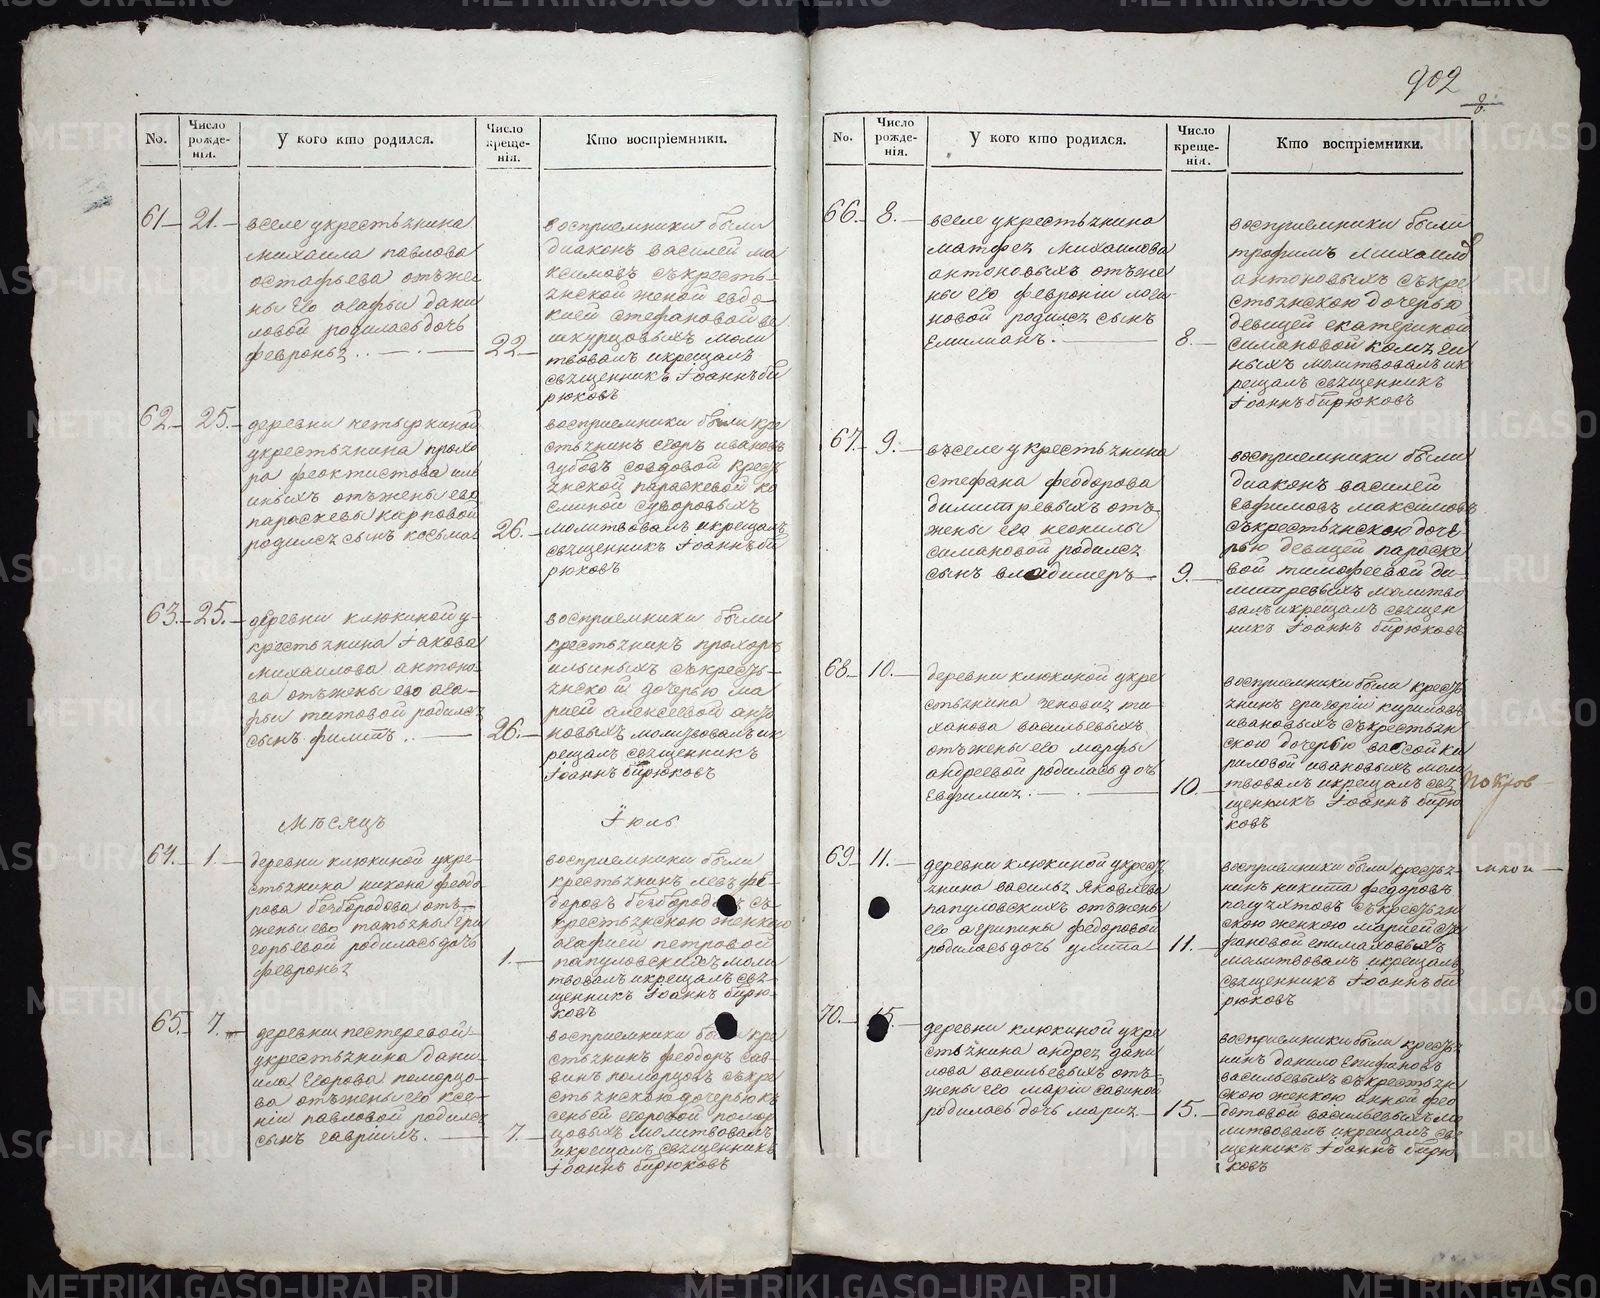 902
No.
Число рожде-нія.
У кого кто родился.
Число креще-нія.
Кто воспріемники.
61 21. вселе укрестьянина
михаила павлова
остафьева отъже
ны его агафьи дани
ловой родилась дочь
февронья
22
восприемники были
диаконъ василей ма
ксимовъ съкресть-
янской женой евдо-
кией стефановой
моли
твовалъ икрещалъ
священникъ Іоаннъ би
рюковъ
62. 25. деревни
укрестьянина прохо
ра феоктистова иль
иныхъ отъжены его
параскевы карповой
родился сынъ косьма
26.
восприемники были кре
стьянинъ егоръ ивановъ
зубовъ крестья
янской параскевой
суворовыхъ
молитвовалъ икрещалъ
священникъ Іоаннъ би
рюковъ
63. 25. деревни клюкиной у-
крестьянина Іакова
михаилова антоно-
ва отъжены его ага-
фьи титовой родился
сынъ филитъ
26.
восприемники были
крестьянинъ прохоръ
ильиныхъ съкресть-
янской дочерью ма
рией алексеевой анто
новыхъ молитвовалъ ик
рещалъ священникъ
Іоаннъ бирюковъ
Мѣсяцъ Іюль
64. 1. деревни клюкиной укре-
стьянина никона феодо
рова безбородова отъ-
жены его татьяны гри
горьевой родилась дочь
февронья
1.
восприемники были
крестьянинъ левъ фе-
доровъ безбородовъ съ
крестьянскою женкою
агафией петровой
папуловскихъ моли
твовалъ икрещалъ свя-
щенникъ Іоаннъ бирю-
ковъ
65. 7. деревни пестеревой
укрестьянина дани-
ила Егорова поморцо-
ва отъжены его ксе-
ніи павловой родился
сынъ гавриилъ.
7.
восприемники были кре
стьянинъ феодоръ сав-
винъ поморцовъ съкре
стьянскою дочерью к
сеньей егоровой помор
цовыхъ молитвовалъ
икрещалъ священникъ
Іоаннъ бирюковъ
No.
Число рожде-нія.
У кого кто родился.
Число креще-нія.
Кто воспріемники.
66. 8. вселе укрестьянина
матфея михаилова
антоновыхъ отъже
ны его февроніи логи
новой родился сынъ
Емилианъ.
8.
восприемники были
трофимъ михаиловъ
антоновыхъ съкре
стьянскою дочерью
девицей екатериной
симановой
молитвовалъ ик
рещалъ священникъ
Іоаннъ бирюковъ
67. 9. въселе укрестьянина
стефана феодорова
димитревыхъ отъ-
жены его неонилы
симановой родился
сынъ владимеръ
9.
восприемники были
диаконъ василей
Евфимовъ максимовъ
съкрестьянскою доче-
рью девицей параске
вой тимофеевой ди-
митревыхъ молитво
валъ икрещалъ священ
никъ Іоаннъ бирюковъ
68. 10. деревни клюкиной укре
стьянина ти-
ханова васильевыхъ
отъжены его марфы
андреевой родилась дочь
Евфимия.
10.
восприемники были кресть
янинъ григорій кириловъ
ивановыхъ съкрестьян
скою дочерью вассой ки
риловой ивановыхъ моли
твовалъ икрещалъ свя
щенникъ Іоаннъ бирю
ковъ
покров
69. 11. деревни клюкиной укресть
янина василья Яковлева
папуловскихъ отъжены
его агрипины федоровой
родилась дочь улита
11.
восприемники были кресть-
янинъ никита федоровъ
съкрестьян
скою женкою марией сте
фановой епимаховыхъ
молитвовалъ икрещалъ
священникъ Іоаннъ би
рюковъ
70. 15. деревни клюкиной укре
стьянина андрея дани
лова васильевыхъ отъ-
жены его маріи савиной
родилась дочь мария
15.
восприемники были кресть
янинъ данило Епифановъ
васильевыхъ съкрестьян
скою женкою анной фео
дотовой васильевыхъ мо
литвовалъ икрещалъ свя
щенникъ Іоаннъ бирю
ковъ
METRIKI.GASO-URAL.RU